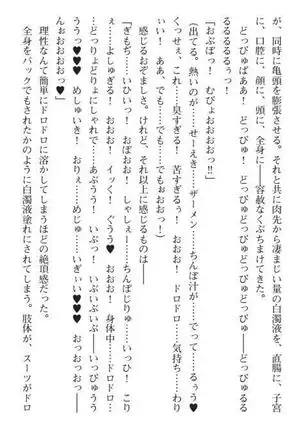 が、同時に亀頭を膨張させる。それと共に肉先から凄まじい量の白濁液を、直腸に、子宮
に、口腔に、顔に、頭に、全身に――容赦なくぶちまけてきた。
どっぴゅばぁあ! どっぴゅ! どっぴゅどっぴゅどっぴゅどっぴゅ――どっぴゅるる
るるるるるぅっ!
「おぶぼっ! むびょおおおおっ!!」
(出てる。熱いのが……せーえき……ザーメン……ちんぽ汁が……でって……るぅう♥
くっせぇ、これ……臭すぎる! おおお! ドロドロ……気持ち……わり
ぃい! ああ、でも……でも……でもぉおおおっ)
感じるおぞましさ。けれど、それ以上に感じるものは――
「ぎもぢ……いひいっ! おぼおお! しゃしぇー……ちんぽじりゅ……いっひ! こり
ぇ……よしゅぎる! おおお! イッく! ぐうう♥ おおお! 身体中……ドロドロ……
どっりょどりょにしゃれで……あふうう! いぶっ! いぶいぶいぶ――いっぴゅうう
ううっ♥♥ めしゅいき! おりぇ……めじゅ……いぎぃい♥♥♥ おっおっおおっ――
おっおおおおっ♥」
理性なんて簡単にドロドロに溶かしてしまうほどの絶頂感だった。
全身をパックでもされたかのように白濁液塗れにされてしまう。肢体が、スーツがドロ